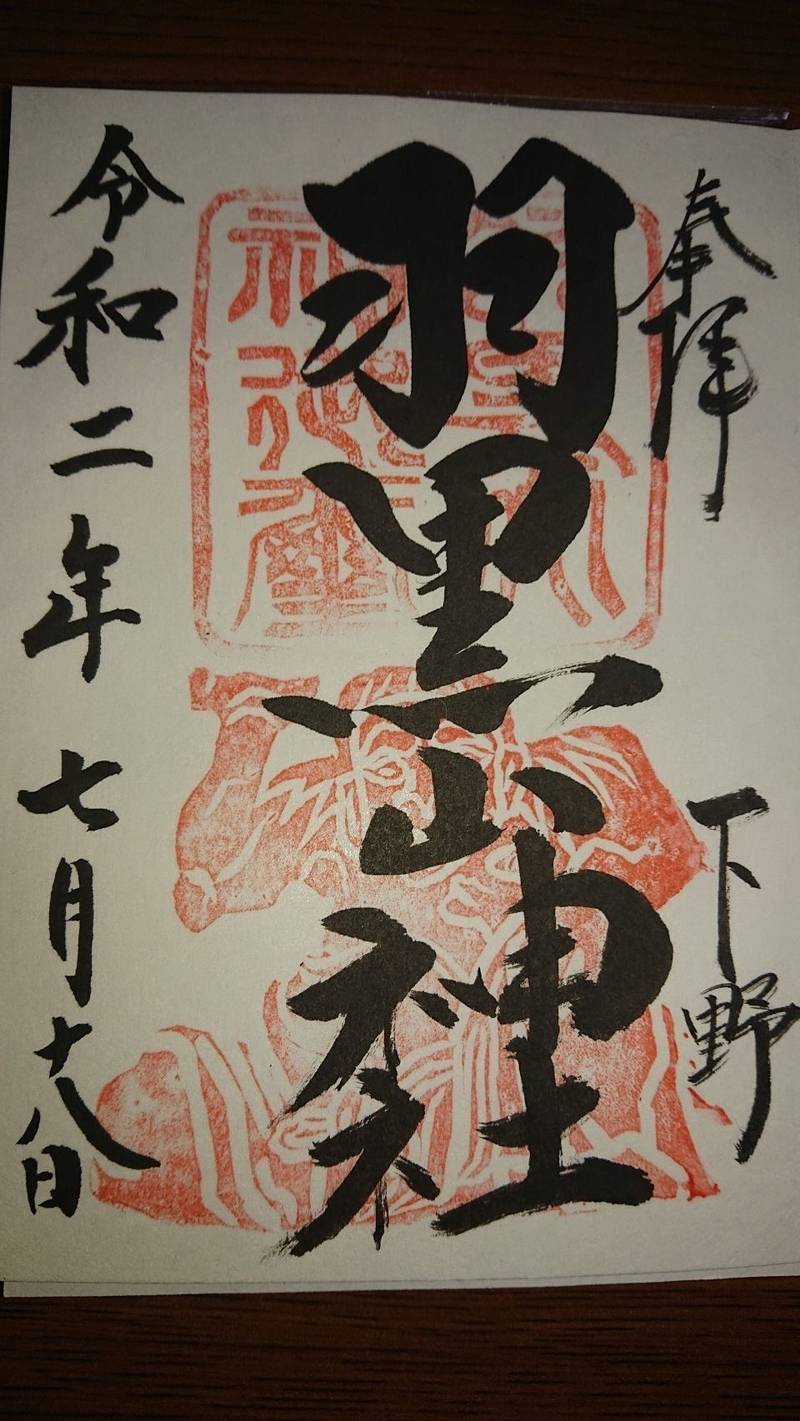 奉拝
下野
羽黒山神社
令和二年
七月十八日